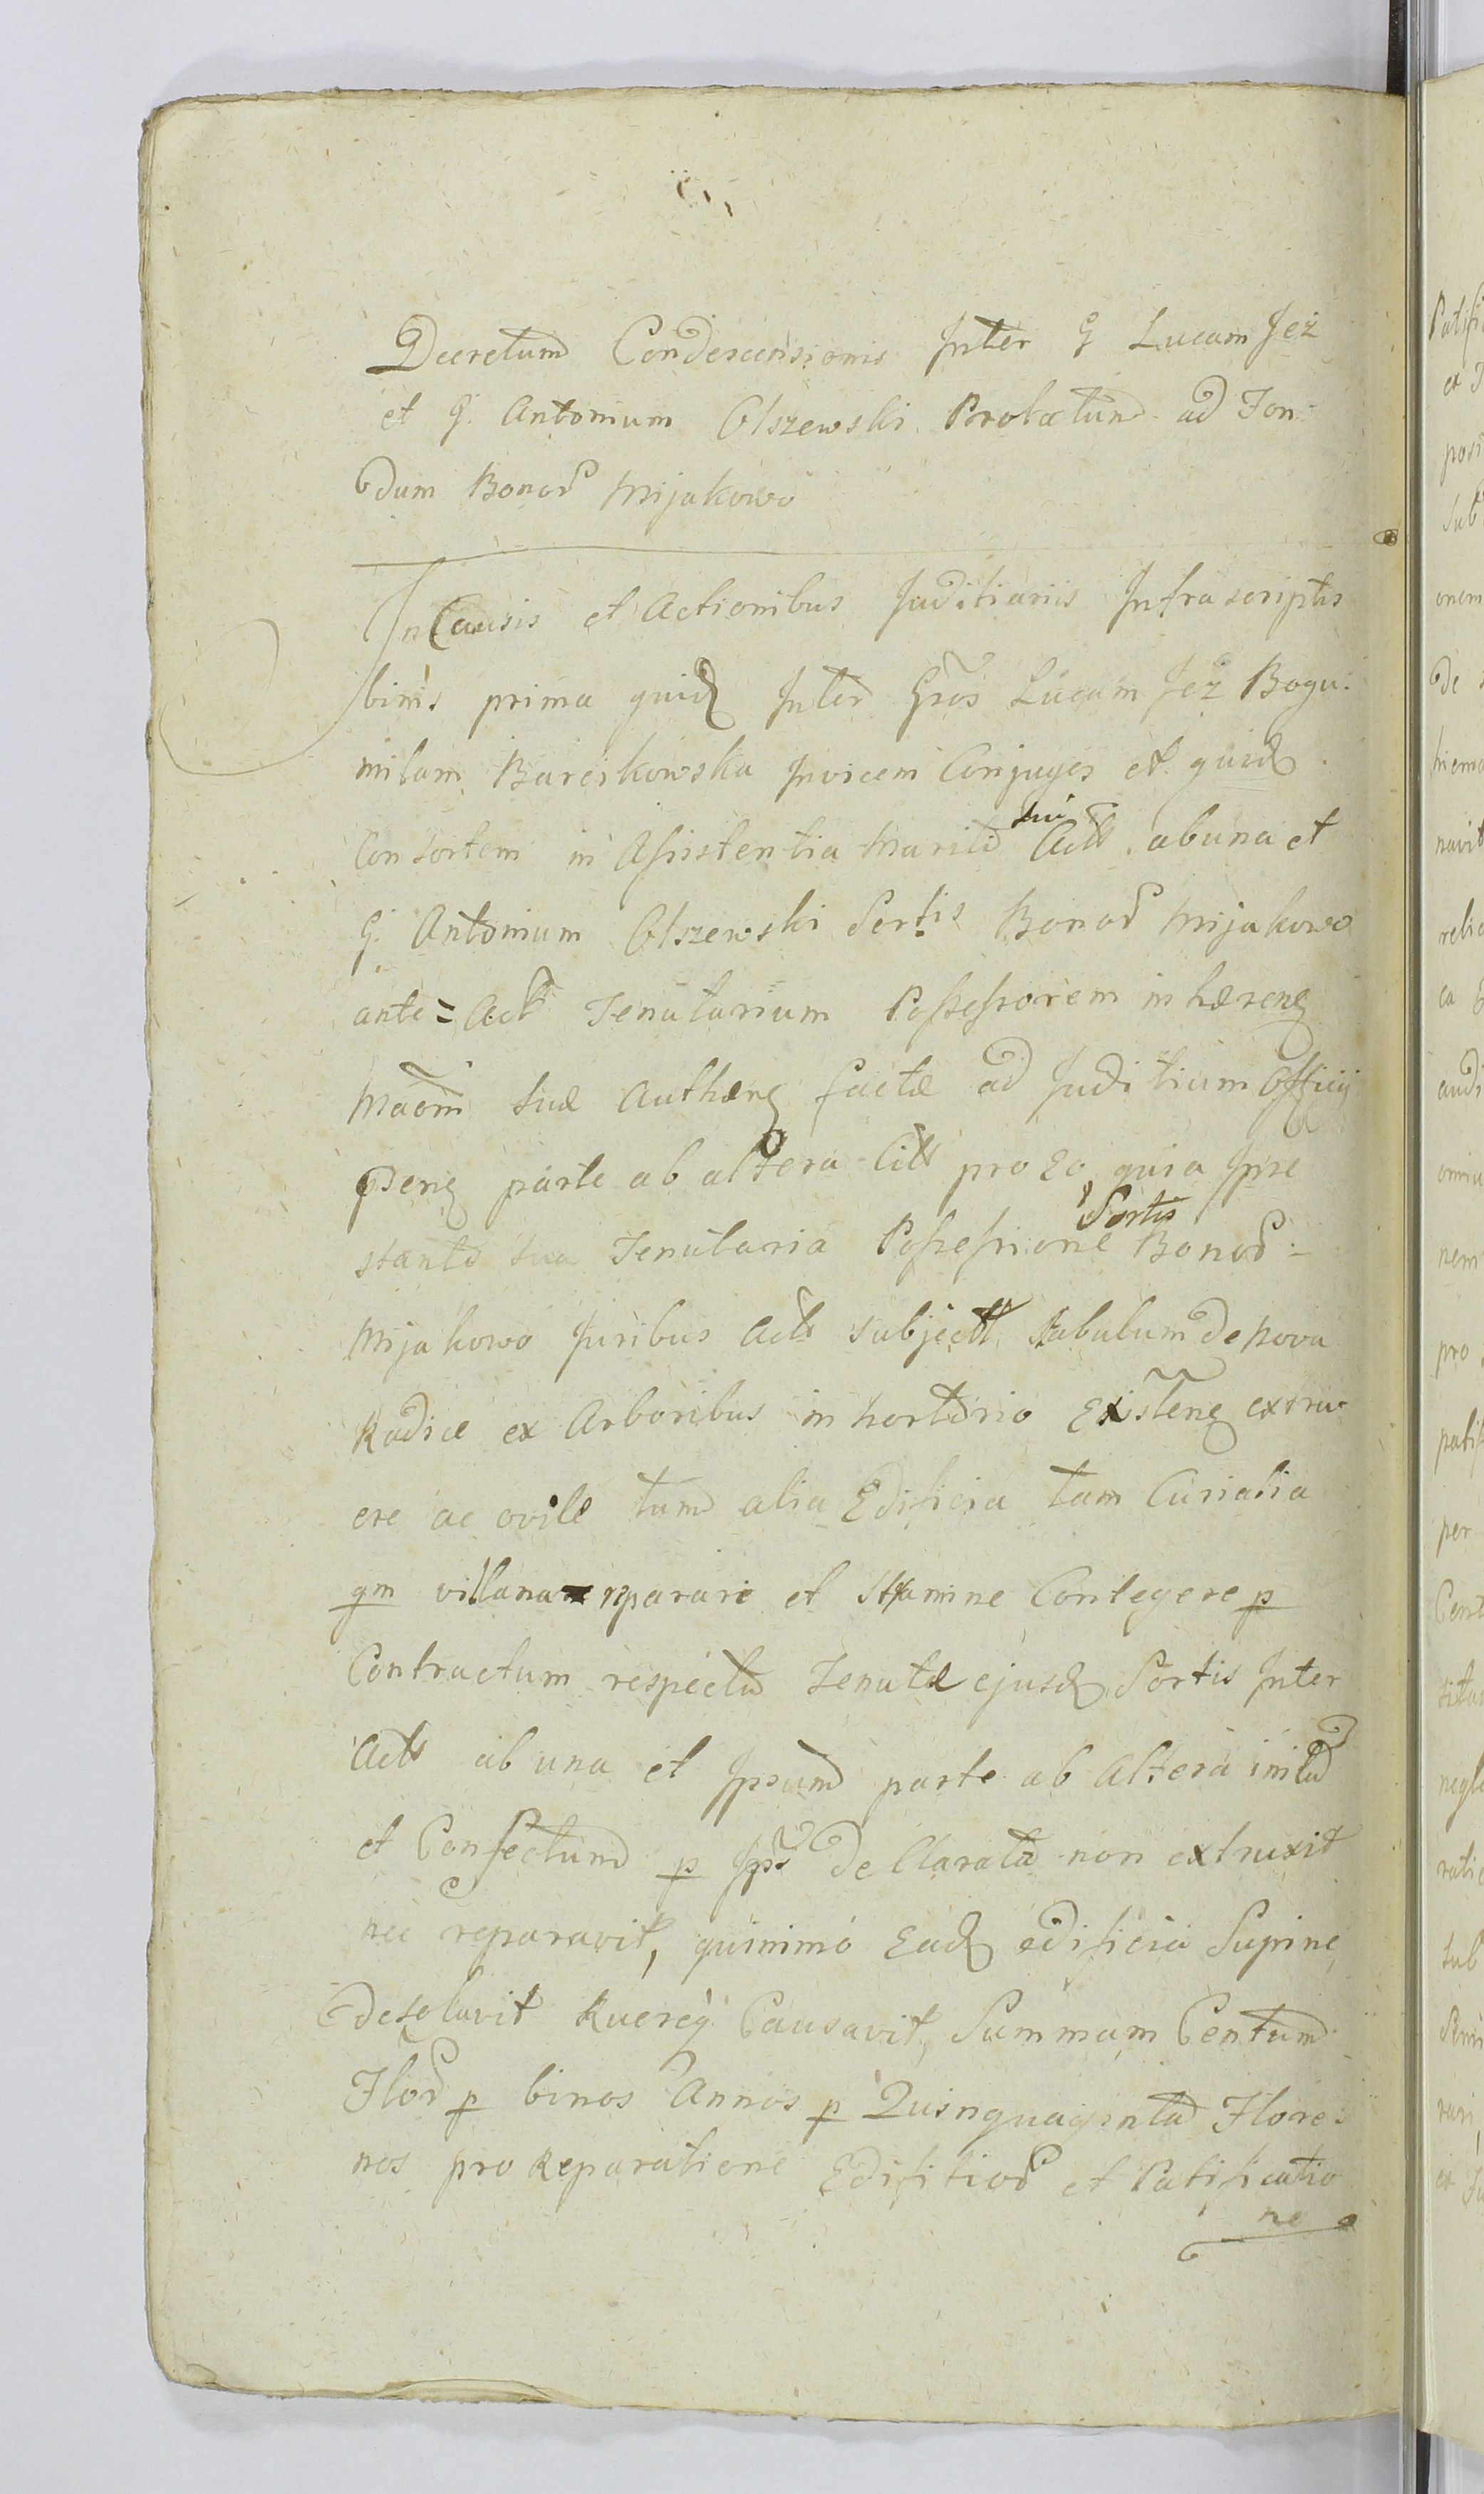 Decretum Condescensionis Inter G Lucam Jeż
et G. Antonium Olszewski Prolatum ad Fon-
dum Bonor Mijakowo
In Causis et Actionibus Juditiariis Infrascriptis
binis prima quid Inter Gros Lucam Jeż Bogu-
milam Barcikowska Invicem Conjuges et quid
Consortem in Assistentia Mariti sui Acts ab una et
G. Antonium Olszewski Sortis Bonor Mijakowo
ante = Act Tenutarium Possessorem inhæren
Maoni suæ Authen factæ ad Juditium Officij
Pen parte ab altera Cits pro eo, quia Ipse
stante sua Tenutaria Possessione Sortis Bonor
Mijakowo Juribus Acts subject Stabulum de Nova
Radice ex Arboribus in horto rio Existen extru-
ere ac ovile tum alia Edificia tam Curialia
qm villana reparare et Stramine Contegere p
Contractum respectu Tenutæ ejusd Sortis Inter
Acts ab una et Ipsum parte ab Altera initu
et Confectum p Ips Declarata non extruxit
nec reparavit, quinimo Ead ædificia Supine
desolavit Ruereq Causavit, Summam Centum
Flor p binos Annos p Quinquaginta Flore-
nos pro Reparatione Edifitior et Patificatio
ne
Patifi
et
posi
Sub
onem
de
hiema
navit
relic
ea
audi
omiu
nem
pro
patif
per
Cent
negle
ratio
sub
rari